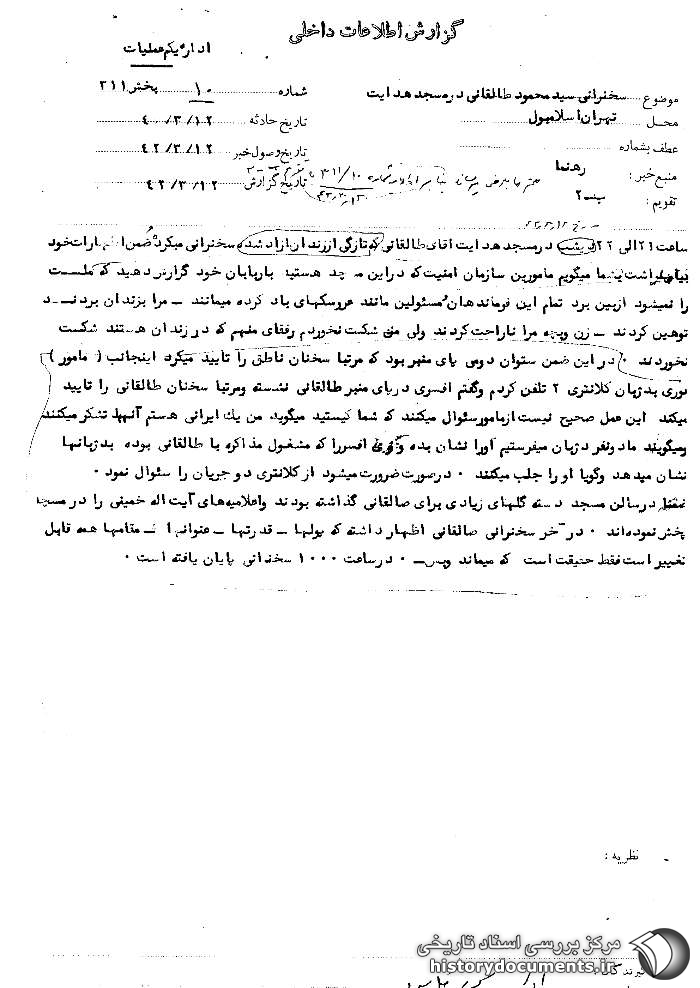 گزارش اطلاعات داخلی
اداره یکم عملیات
شماره ۱۰ بخش ۳۱۱
موضوع سخنرانی سید محمود طالقانی در مسجد هدایت
تاریخ حادثه ۱۲/ ۳/ ۴۰
محل تهران اسلامبول
تاریخ وصول خبر ۱۲/ ۳/ ۴۲
عطف بشماره
منبع خبر: رهنما
تاریخ گزارش ۱۲/ ۳/ ۴۲
تقویم: ب-۲
ساعت ۲۱ الی ۲۲ دیشب در مسجد هدایت آقای طالقانی که تازگی از زندان آزاد شده سخنرانی میکرد ضمن اظهارات خود
بشما میگویم مامورین سازمان امنیت که در این مسجد هستید باربابان خود گزارش دهید که ملت
را نمیشود از بین برد تمام این فرماندهان مسئولین مانند عروسکهای باد کرده میمانند ــ مرا بزندان بردنــد
توهین کردند ــ زن و بچه مرا ناراحت کردند ولی منی شکست نخوردم رفقای منهم که در زندان هستند شکست
نخوردند ۰ در این ضمن ستوان دومی پای منبر بود که مرتبا سخنان ناطق را تایید میکرد اینجانب ( مامور )
فوری بدژبان کلانتری ۲ تلفن کردم وگفتم افسری در پای منبر طالقانی نشسته ومرتبا سخنان طالقانی را تایید
میکند این عمل صحیح نیست از مامور سئوال میکنند که شما کیستید میگوید من یك ایرانی هستم آنها تشکر میکنند
ومیگویند ما دونفر دژبان میفرستیم اورا نشان بده وفوری افسررا که مشغول مذاکره با طالقانی بوده بدژبانها
نشان میدهد وگویا او را جلب میکنند ۰ در صورت ضرورت میشود از کلانتری دو جریان را سئوال نمود ۰
در سالن مسجد دسته گلهای زیادی برای طالقانی گذاشته بودند واعلامیه های آیت اله خمینی را در مسجد
پخش نموده اند ۰ در آخر سخنرانی طالقانی اظهار داشته که پولها ــ قدرتها ــ عنوانها ــ مقامها همه قابل
تغییر است فقط حقیقت است که میماند وبس ــ ۰ در ساعت ۱۰۰۰ سخنرانی پایان یافته است ۰
نظریه :
مرکز بررسی اسناد تاریخی
historydocuments.ir